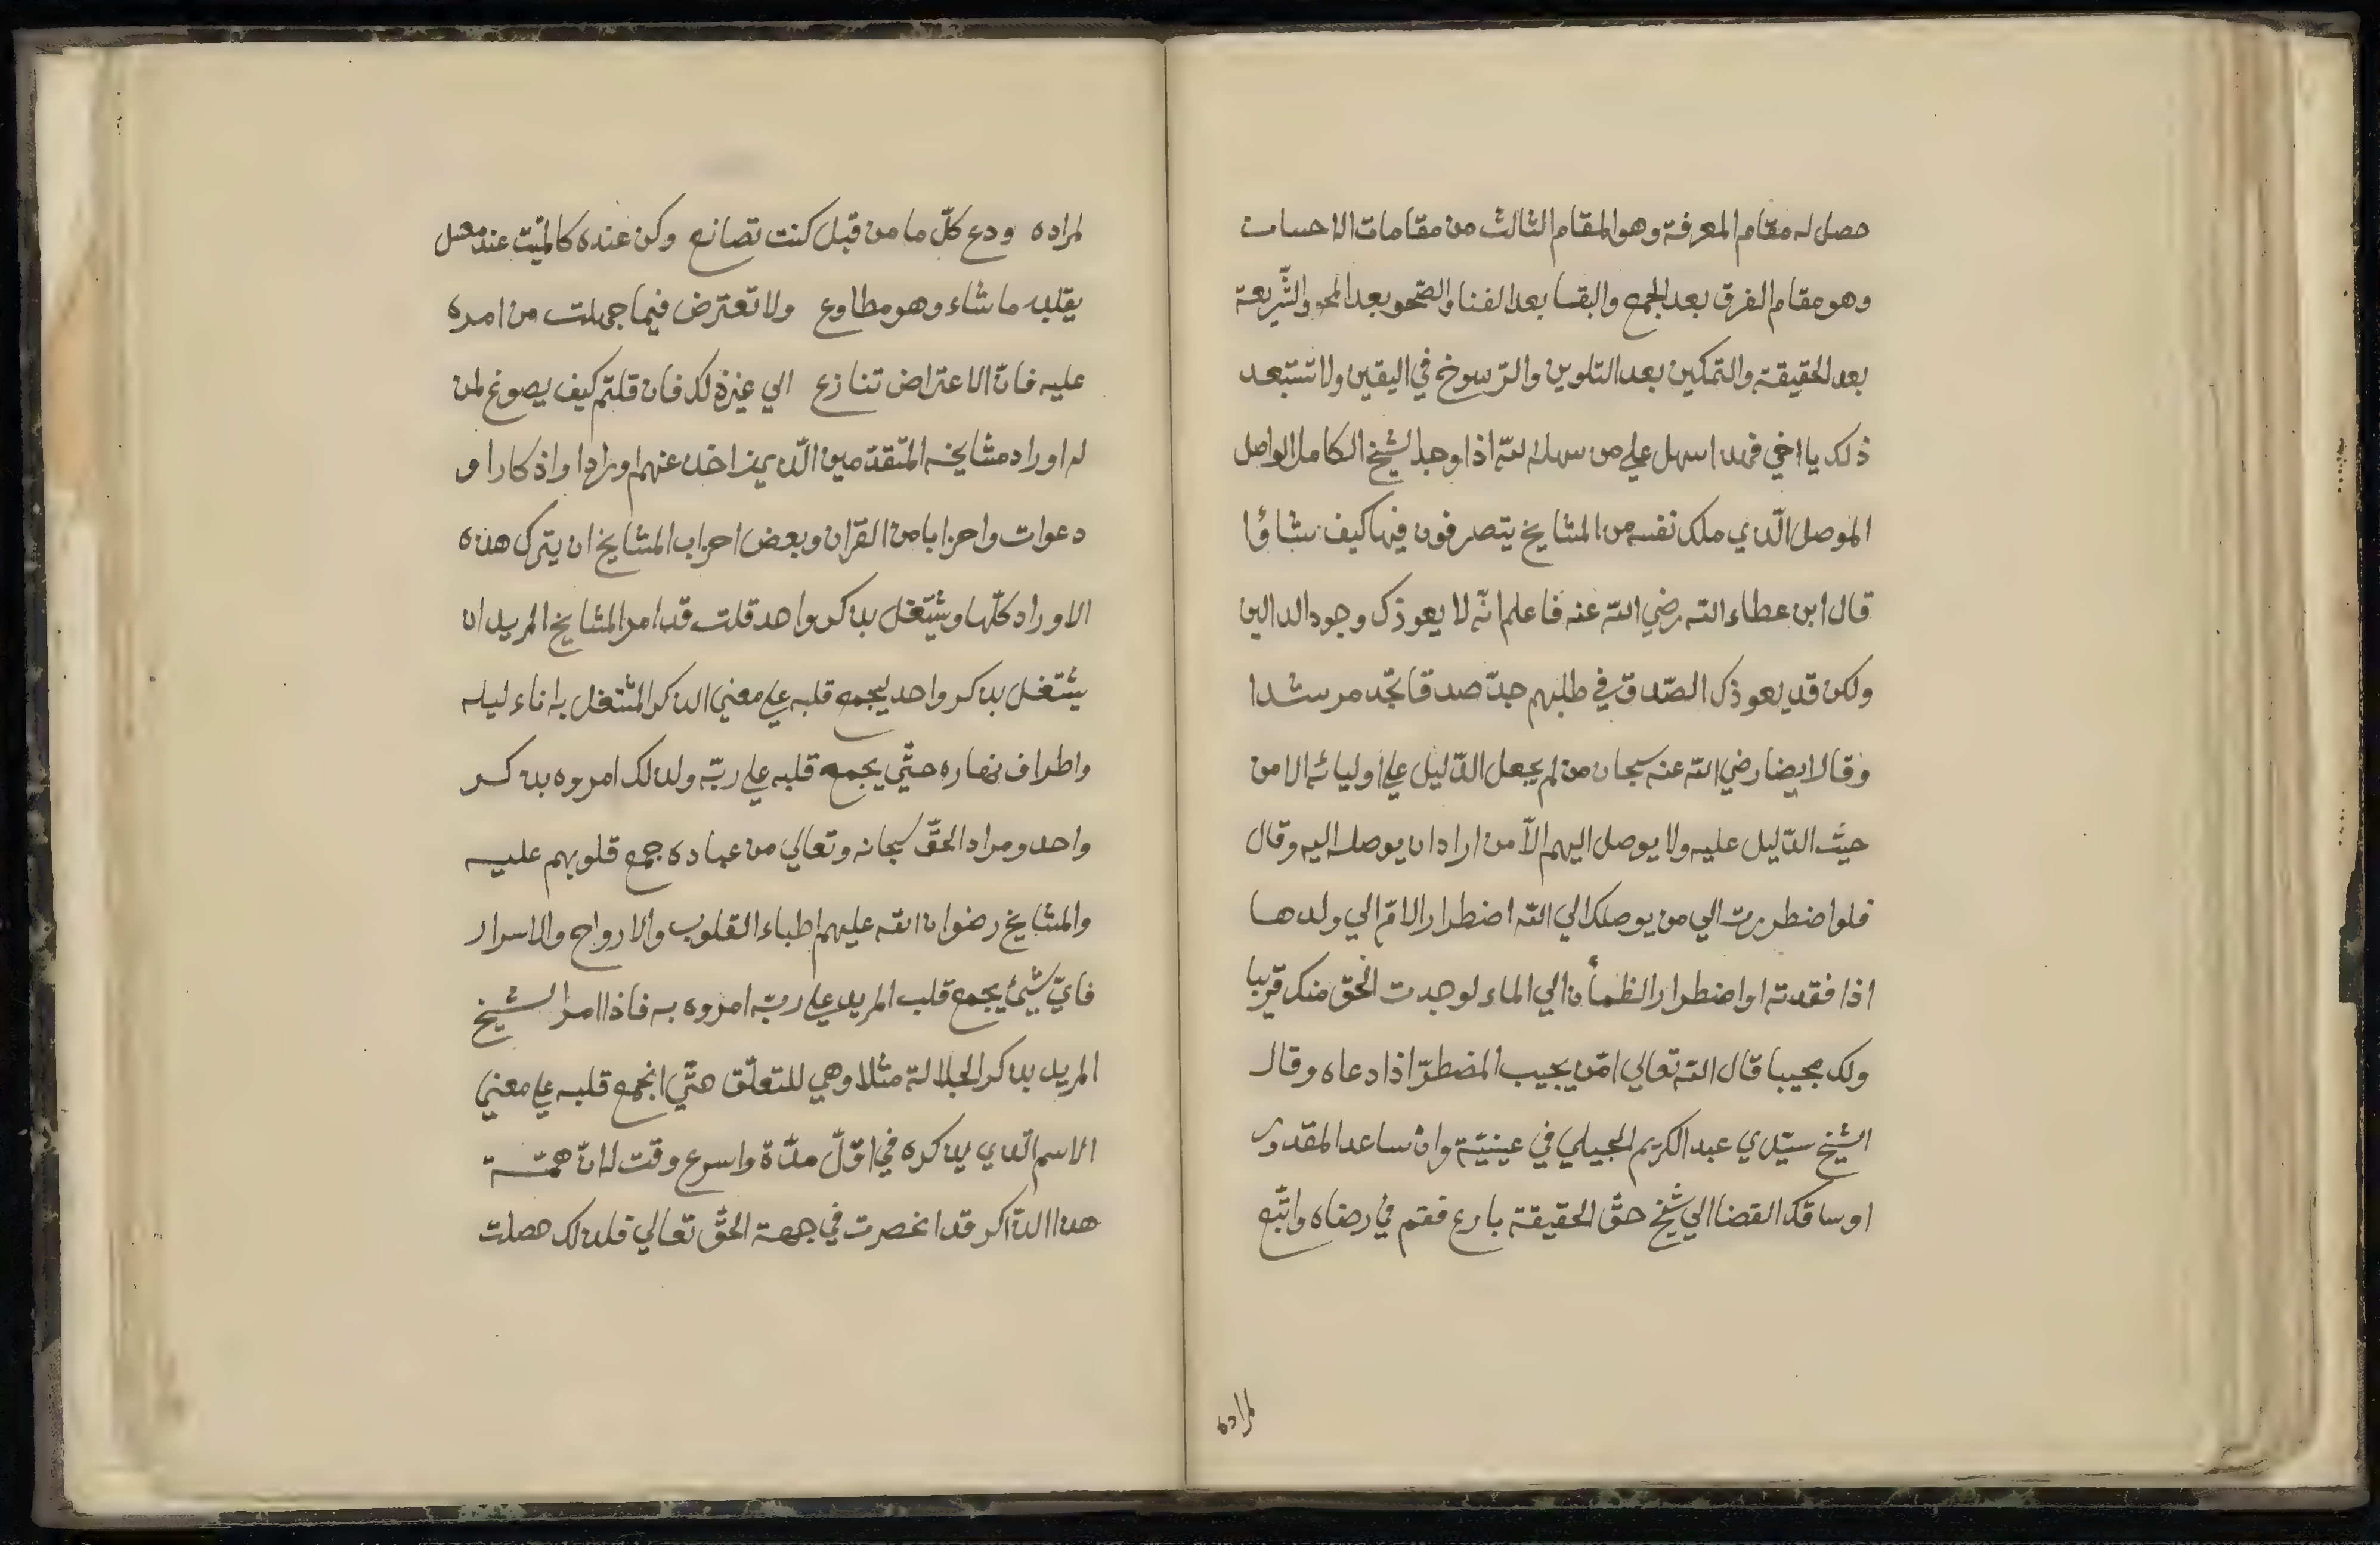 حصل له مقام المعرفة وهو المقام الثالث من مقامات الاحسان
وهو مقام الفرق بعد الجمع والبقا بعد الفنا والصّحو بعد المحو والشّريعة
بعد الحقيقة والتمكين بعد التلوين والرّسوخ في اليقين ولا تستبعد
ذلك يا اخي فهذا سهل علي من سهله الله اذا وجد الشيخ الكامل الواصل
الموصل الّذي ملك نفسه من المشايخ يتصرفون فيها كيف شاؤا
قال ابن عطاء الله رضي الله عنه فاعلم انّه لا يعوذك وجود الدالين
ولكن قد يعوذك الصّدق في طلبهم جدّ صدقا تجد مرشدا
وقال ايضا رضي الله عنه سبحان من لم يجعل الدّليل علي اوليائه الا من
حيث الدّليل عليه ولا يوصل اليهم الّا من اراد ان يوصله اليه وقال
فلو اضطررت الي من يوصلك الي الله اضطرار الامّ الي ولدها
اذا فقدته او اضطرار الظمأن الي الماء لوجدت الحق منك قريبا
ولك مجيبا قال الله تعالي امّن يجيب المضطرّ اذا دعاه وقال
الشيخ سيّدي عبد الكريم الجيلي في عينيّة وان ساعد المقدور
او ساقك القضا الي شيخ حقّ الحقيقة بارع فقم في رضاه واتّبع
لمراده
لمراده ودع كلّ ما من قبل كنت تصانع وكن عنده كالميّت عند مغسل
يقلبه ما شاء وهو مطاوع ولا تعترض فيما جهلت من امره
عليه فانّ الاعتراض تنازع الي غيرة لك فان قلتم كيف يصوغ لمن
له اوراد مشايخه المتقدّمين الّذين اخذ عنهم اورادا واذكارا و
دعوات واحزابا من القران وبعض احزاب المشايخ ان يترك هذه
الاوراد كلّها ويشتغل بذكر واحد قلت قد امر المشايخ المريد ان
يشتغل بذكر واحد ليجمع قلبه علي معني الذكر المشتغل به اناء ليله
واطراف نهاره حتّي يجمع قلبه علي ربّه ولذلك امروه بذكر
واحد ومراد الحقّ سبحانه وتعالي من عباده جمع قلوبهم عليه
والمشايخ رضوان الله عليهم اطباء القلوب والارواح والاسرار
فايّ شيئ يجمع قلب المريد علي ربّه امروه به فاذا امر الشيخ
المريد بذكر الجلالة مثلا وهي للتعلّق حتّي انجمع قلبه علي معني
الاسم الّذي يذكره في اوّل مدّة واسرع وقت لانّ همّة
هذا الذّاكر قد انحصرت في جهة الحقّ تعالي فلذلك حصلت